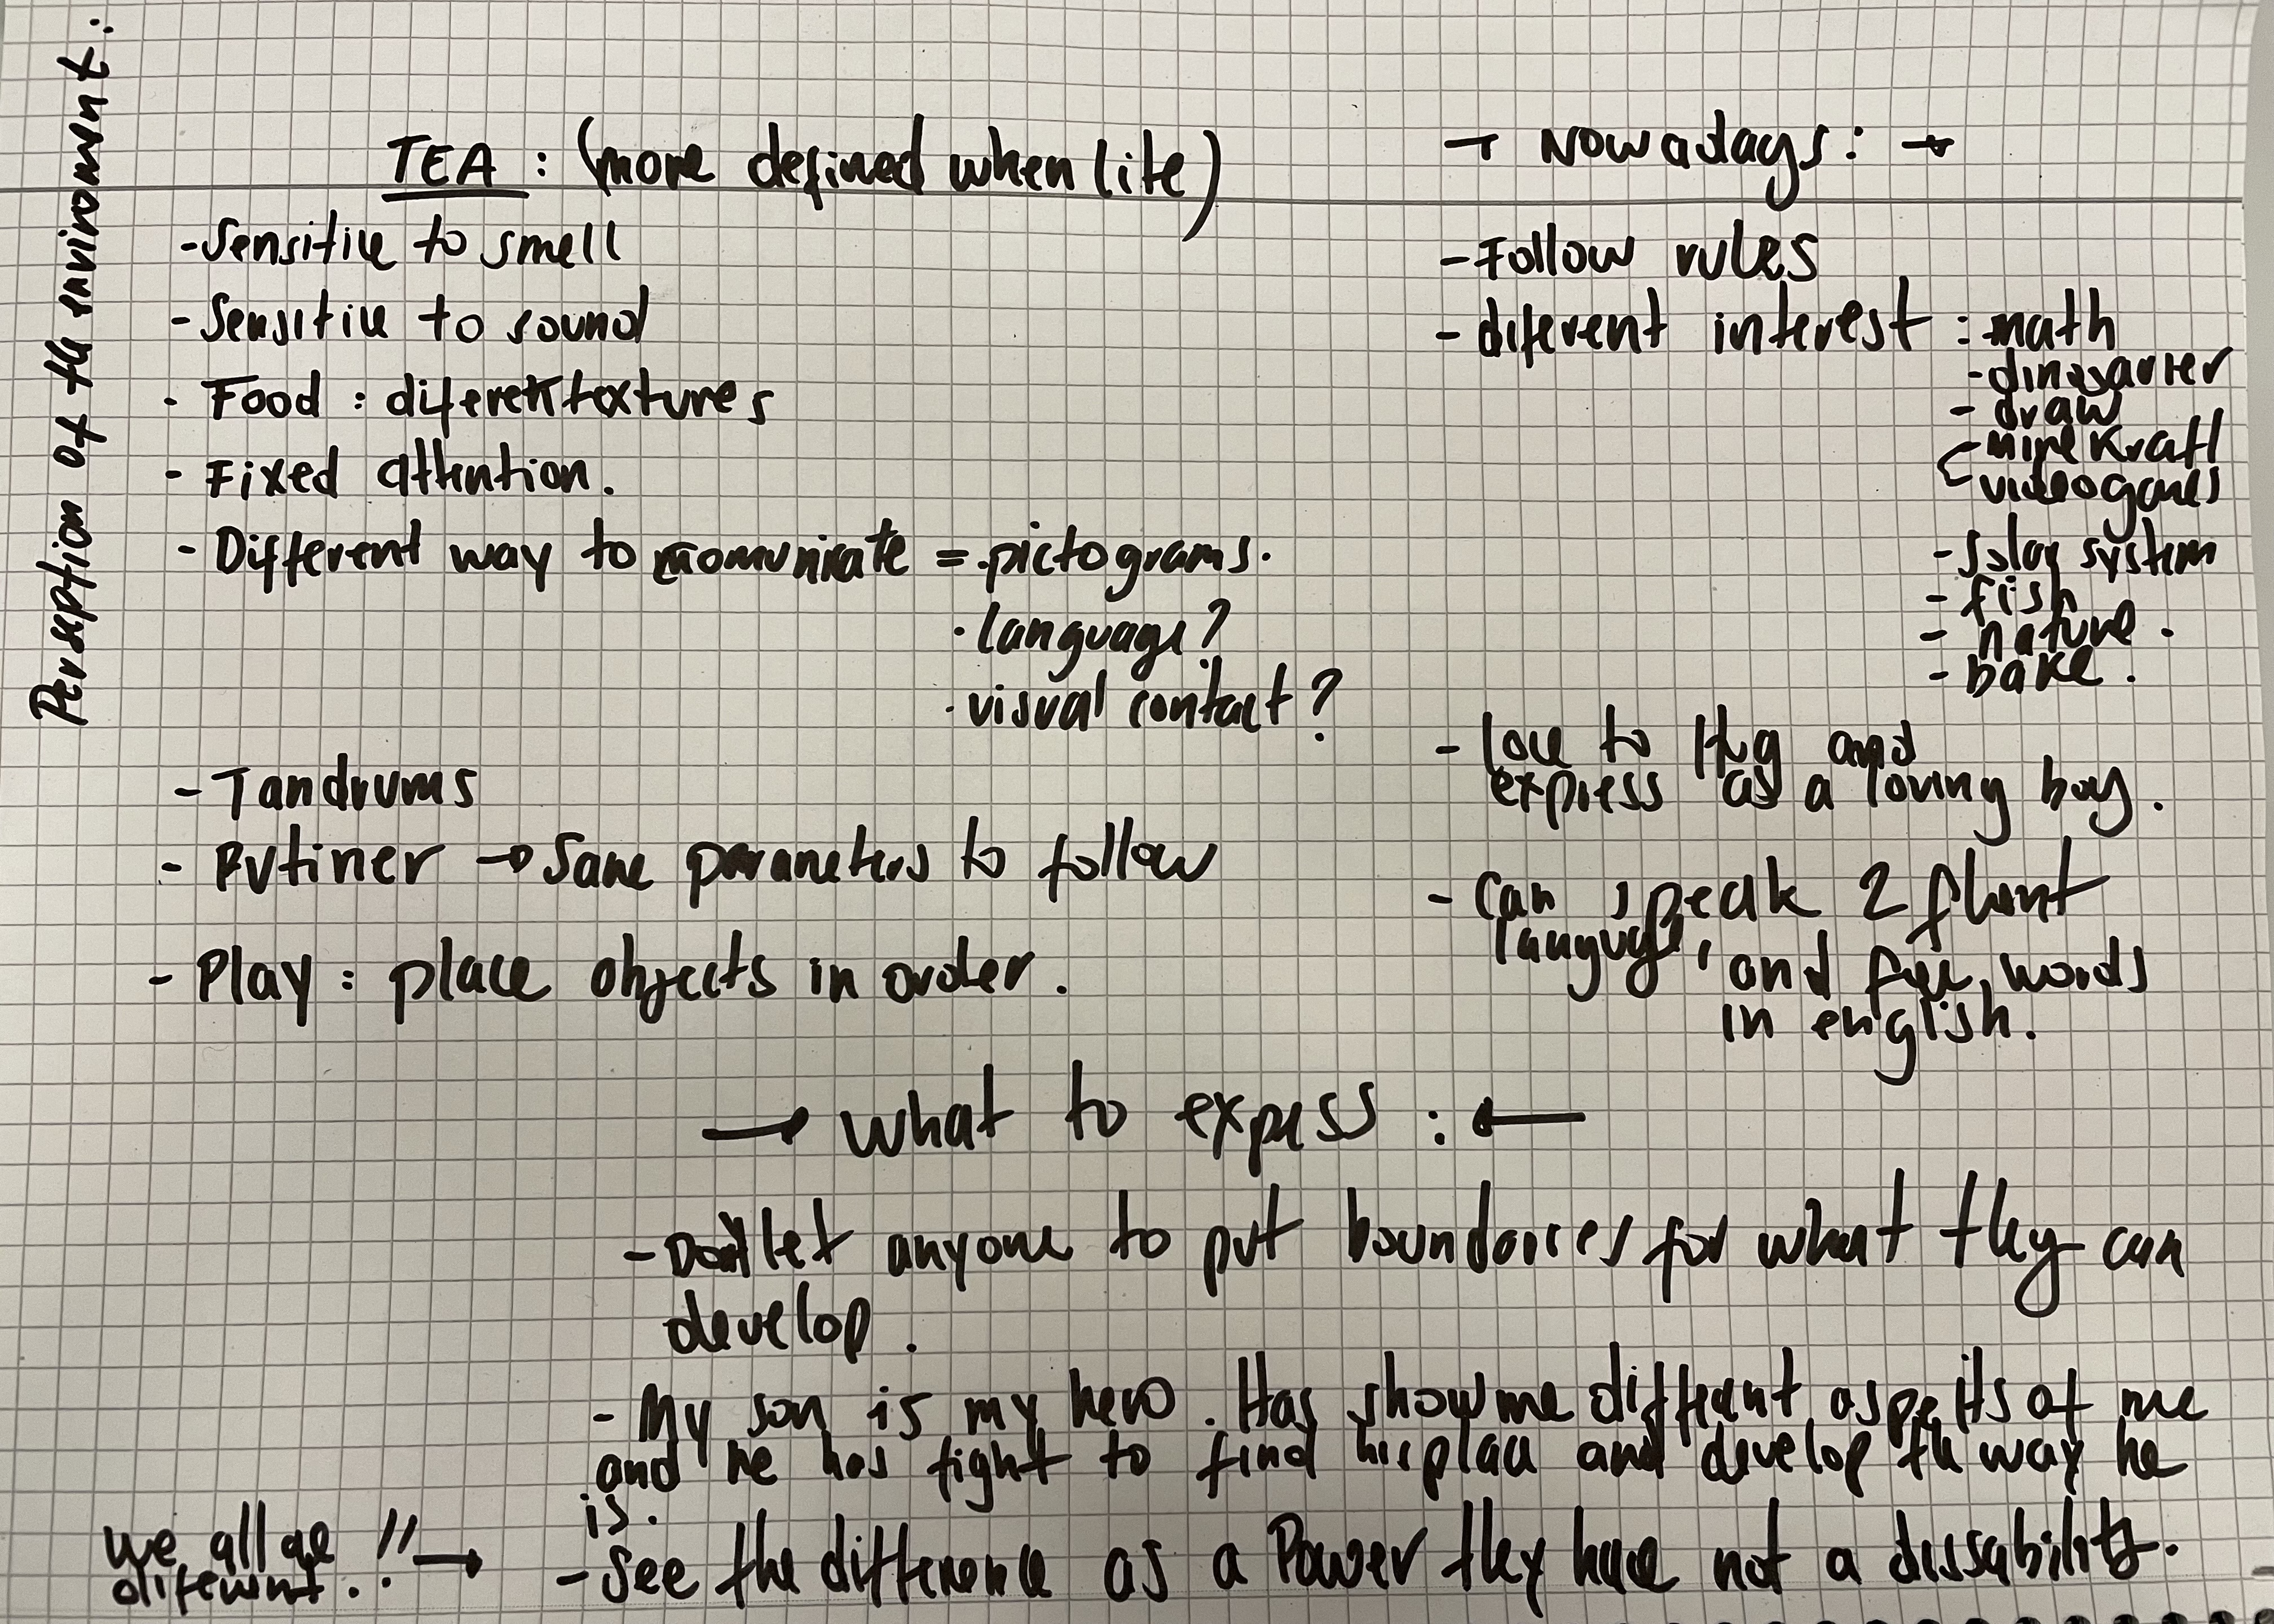 Perseption of th enviroment:
TEA : (more defined when lite)
-Sensitive to smell
-Sensitive to sound
- Food : diferent textures
- Fixed attention.
- Different way to comunicate = .pictograms.
. language?
. visual contact?
- Tandrums
- Rutiner → Same parameters to follow
- Play : place objects in order.
→ Nowadays: →
-Follow rules
- diferent interest : math
-dinosaurier
- draw
-minekraft
-videogames
- Solar system
- fish
- nature.
- bake.
- love to Hug and
express as a loving boy.
- Can speak 2 fluent
languge, and few words
in english.
→ what to express : ←
- Don't let anyone to put boundaries for what they can
develop.
- My son is my hero. Has show me different aspects of me
and he has fight to find his place and develop the way he
is.
we all are !! →
diferent.
- See the difference as a Power they have not a dissability.